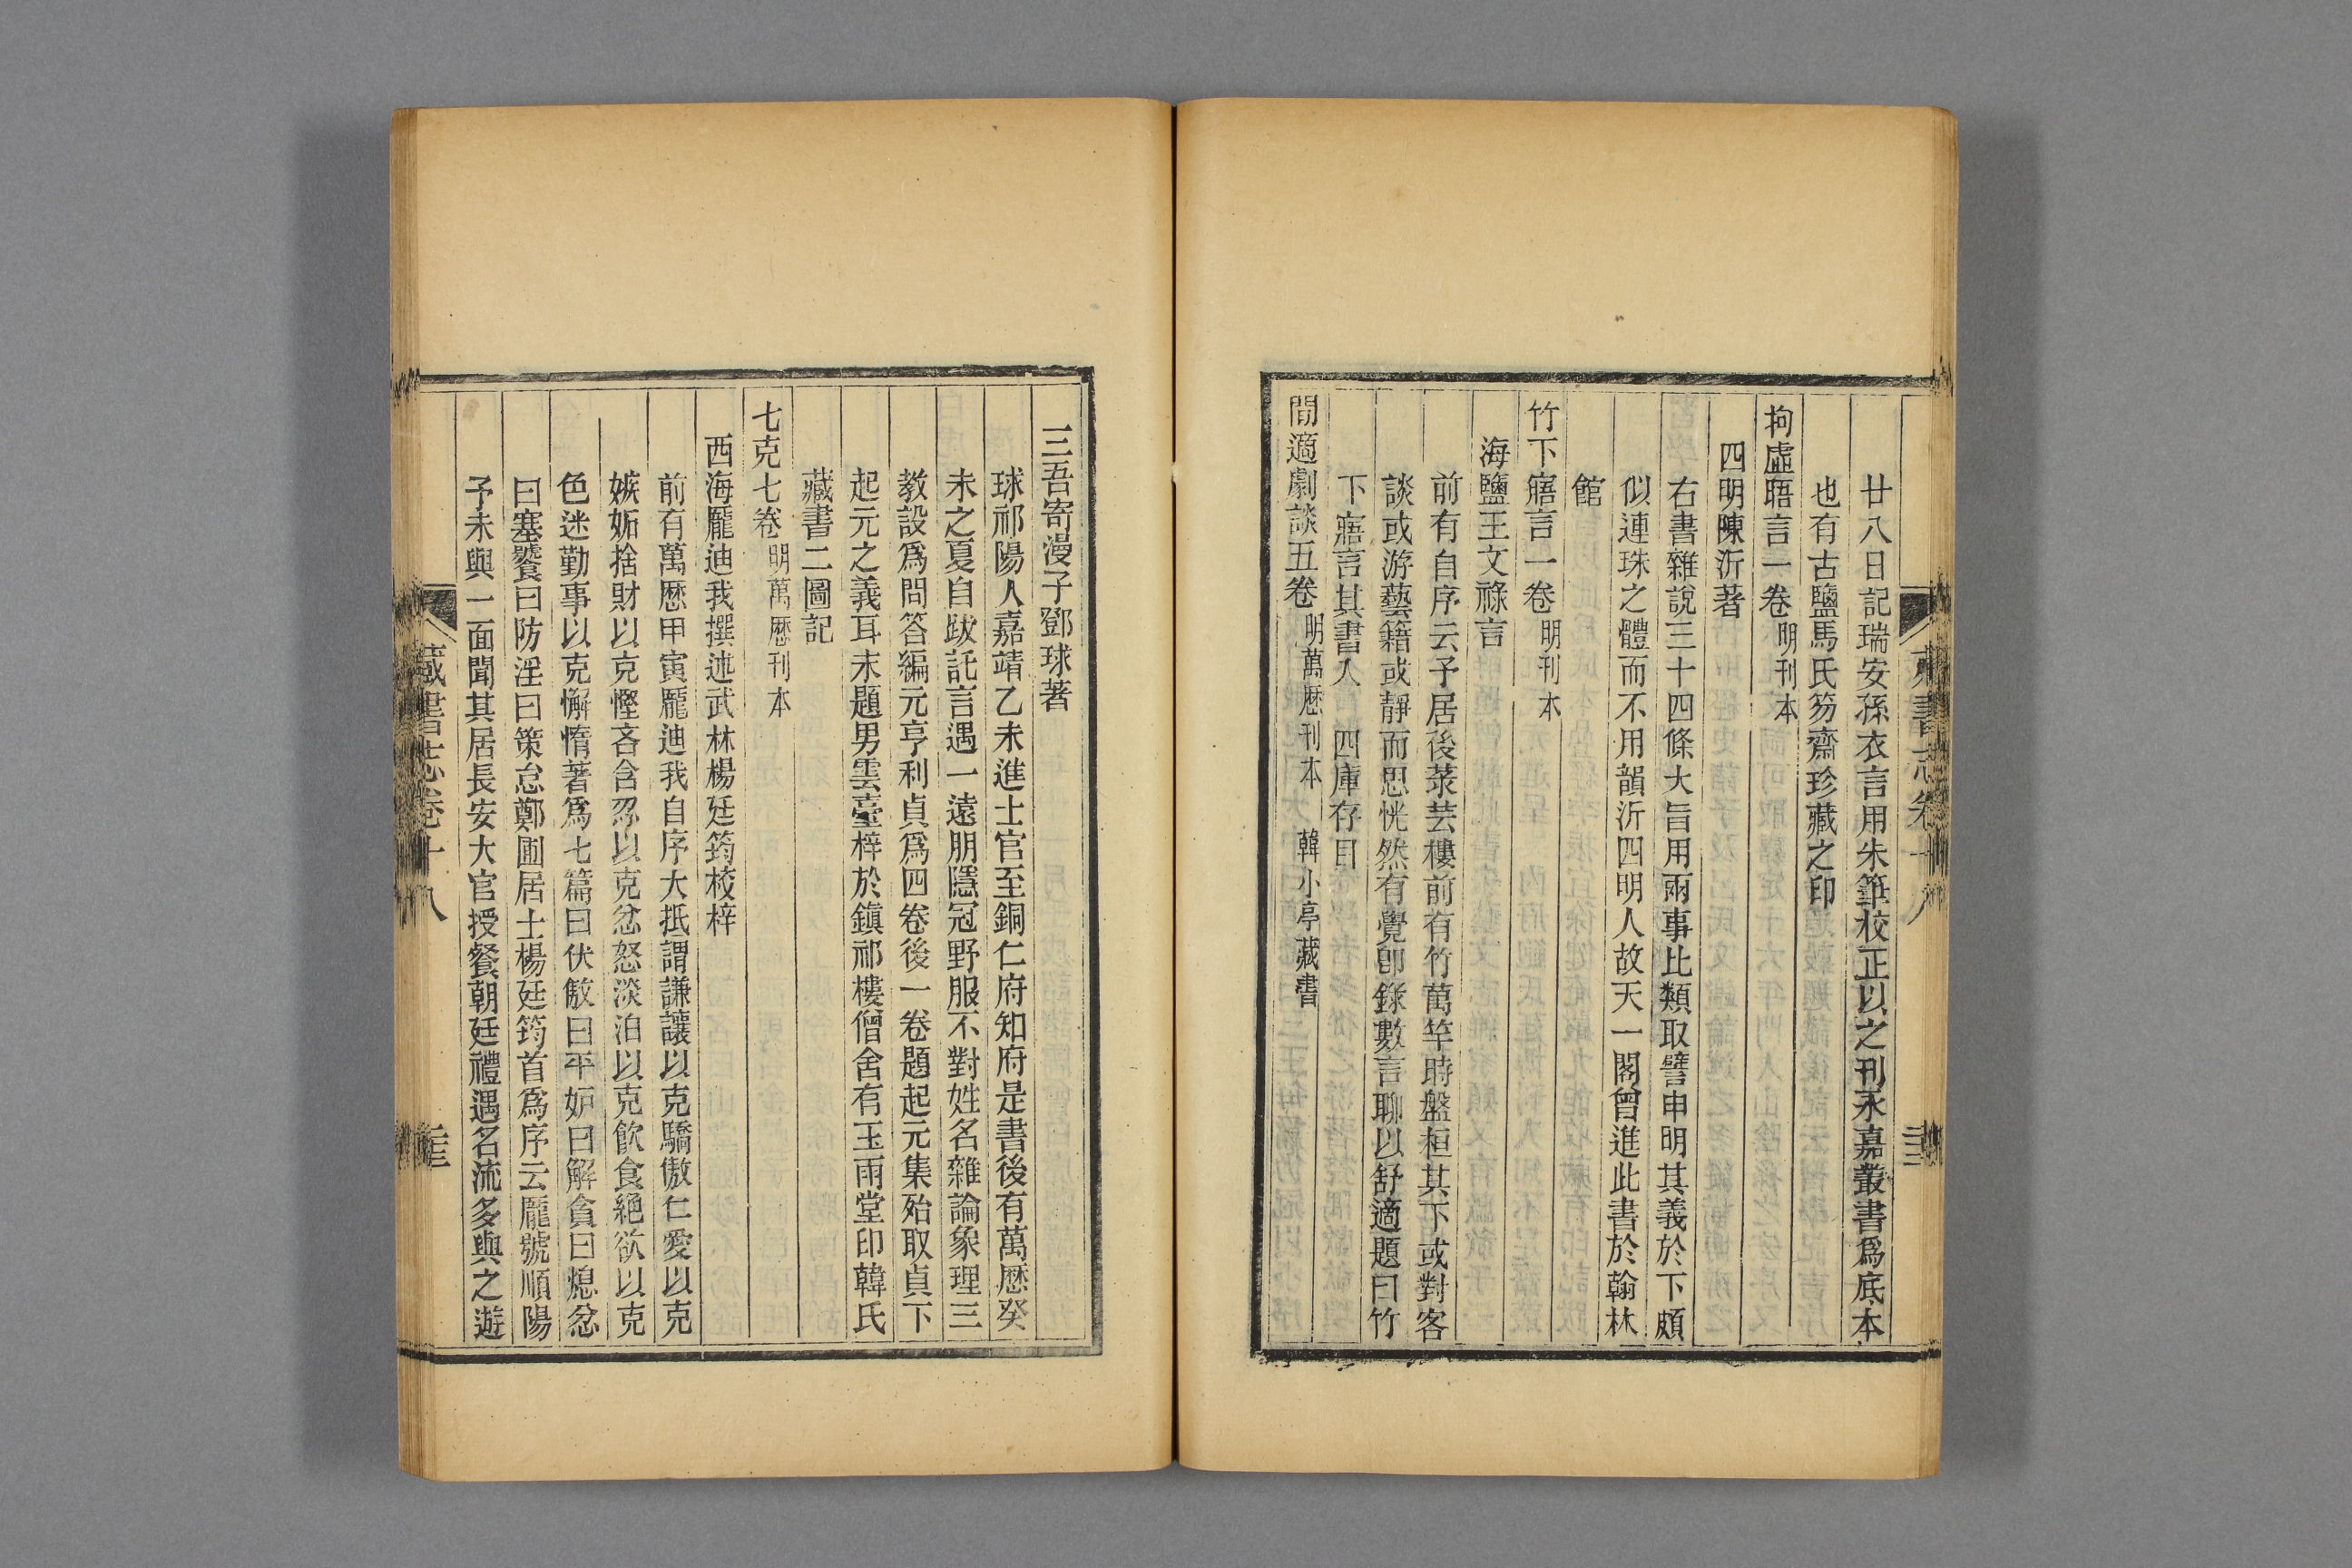 廿八日記瑞安孫衣言用朱筆校正以之刊永嘉叢書爲底本
也有古鹽馬氏笏齋珍藏之印
拘虛晤言一卷明刊本
四明陳沂著
右書雜說三十四條大旨用兩事比類取譬申明其義於下頗
似連珠之體而不用韻沂四明人故天一閣曾進此書於翰林
館
竹下寤言一卷明刊本
海鹽王文祿言
前有自序云予居後菉芸樓前有竹萬竿時盤桓其下或對客
談或游藝籍或靜而思恍然有覺卽錄數言聊以舒適題曰竹
下寤言其書入 四庫存目
閒適劇談五卷明萬厯刊本 韓小亭藏書
三吾寄漫子鄧球著
球祁陽人嘉靖乙未進士官至銅仁府知府是書後有萬厯癸
未之夏自跋託言遇一遠朋隱冠野服不對姓名雜論象理三
教設爲問答編元亨利貞爲四卷後一卷題起元集殆取貞下
起元之義耳末題男雲臺梓於鎭祁樓僧舍有玉雨堂印韓氏
藏書二圖記
七克七卷明萬厯刊本
西海龎迪我撰述武林楊廷筠校梓
前有萬厯甲寅龎迪我自序大抵謂謙讓以克驕傲仁愛以克
嫉妬捨財以克慳吝含忍以克忿怒淡泊以克飮食絕欲以克
色迷勤事以克懈惰著爲七篇曰伏傲曰平妒曰解貪曰熄忿
曰塞饕曰防淫曰策怠鄭圃居士楊廷筠首爲序云龎號順陽
予未與一面聞其居長安大官授餐朝廷禮遇名流多與之遊
藏書志卷十八